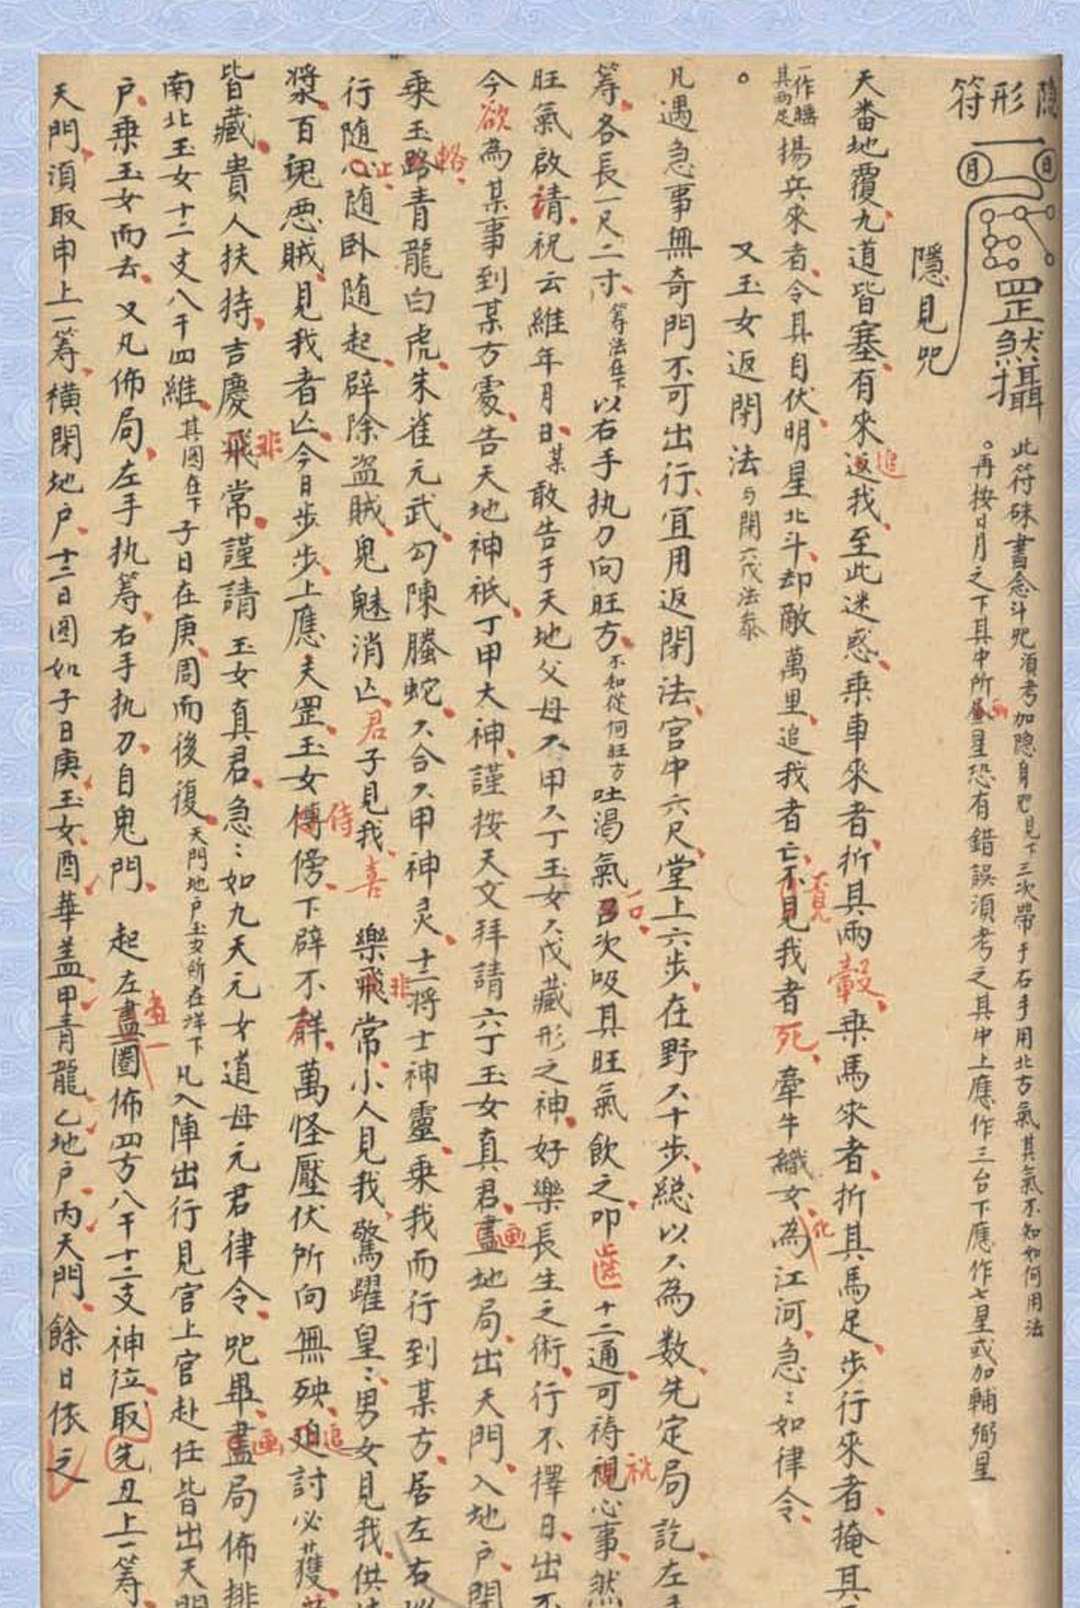 隱形符
日
月
罡煞攝
此符硃書念斗咒須考加隐身咒見下三次帶于右手用北方氣其氣不知如何用法
。再按日月之下其中所畫星恐有錯誤須考之其中上應作三台下應作七星或加輔弼星
隱見咒
天番地覆九道皆塞有來返追我至此迷惑乘車來者折其兩轂乘馬來者折其馬足步行來者掩其
一作腫其兩足揚兵來者令其自伏明星北斗却敵萬里追我者亡不見我者死牽牛織女為化江河急〻如律令
。
又玉女返閉法与閉六戊法泰
凡遇急事無奇門不可出行宜用返閉法宫中六尺堂上六步在野六十步縂以六為数先定局訖左手
筹各長一尺二寸筭法在下以右手执刀向旺方不知從何旺方吐渴氣呂后次吸其旺氣飲之叩齒十二通可祷視祝心事然
旺氣啟請祝云維年月日某敢告于天地父母六甲六丁玉女六戊藏形之神好樂長生之術行不擇日出不
今欲為某事到某方䖏告天地神祇丁甲大神謹按天文拜請六丁玉女真君畫画地局出天門入地户閉
乘玉路輅青龍白虎朱雀元武勾陳螣蛇六合六甲神灵十二将士神靈乘我而行到某方居左右
行随止随卧随起辟除盗賊鬼魅消亾君子見我喜樂飛非常小人見我驚躍皇〻男女見我供
漿百鬼悪賊見我者亾今日步步上應天罡玉女傅侍傍下辟不祥萬怪壓伏所向無殃追討必獲
皆藏貴人扶持吉慶飛非常謹請玉女真君急〻如九天元女道母元君律令咒畢畫画局佈排
南北玉女十二支八干四維其圖在下子日在庚周而後復天門地户玉女所在详下凡入陣出行見官上官赴任皆出天門
户乘玉女而去又凡佈局左手执筹右手执刀自鬼門起左畫圈佈四方八干十二支神位取先丑上一筹
天門湏取申上一筹橫閉地户十二日圖如子日庚玉女酉華盖甲青龍乙地户丙天門餘日依之